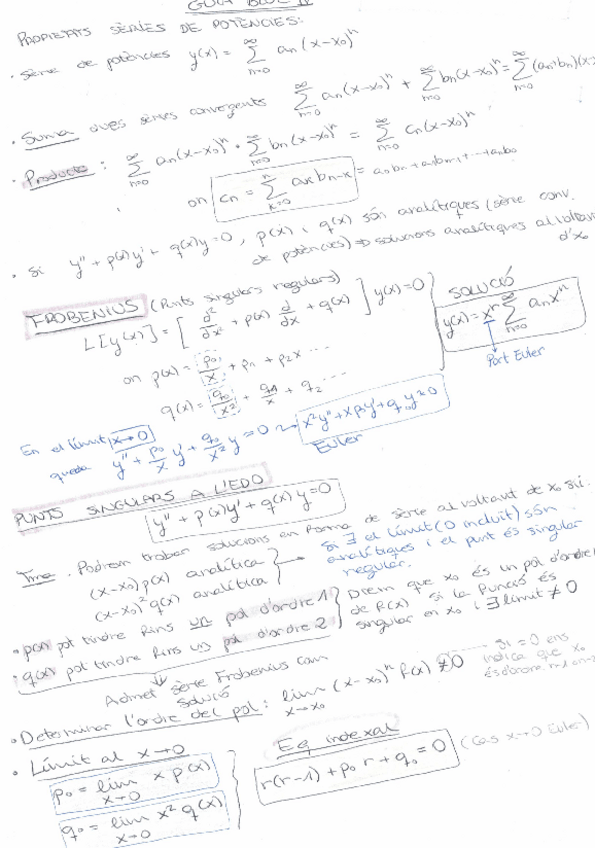 PROPIETATS SÈRIES DE POTÈNCIES:
· sèrie de potències y(x) = ∑_{n=0}^{∞} an (x-x₀)ⁿ
· Suma dues sèries convergents ∑_{n=0}^{∞} an(x-x₀)ⁿ + ∑_{n=0}^{∞} bn(x-x₀)ⁿ = ∑_{n=0}^{∞} (an+bn)(x-x
· Producte: ∑_{n=0}^{∞} an(x-x₀)ⁿ · ∑_{n=0}^{∞} bn(x-x₀)ⁿ = ∑_{n=0}^{∞} cn(x-x₀)ⁿ
on cn = ∑_{k=0}^{n} ak bn-k = a₀bn + a₁bn-1 + ... + an b₀
· Si y'' + p(x)y' + q(x)y = 0, p(x) i q(x) són analítiques (sèrie conv.
de potències) ⇒ solucions analítiques al voltant
d'x₀
FROBENIUS (Punts singulars regulars)
L[y(x)] = [d²/dx² + p(x) d/dx + q(x)] y(x) = 0
on p(x) = p₀/x + p₁ + p₂x ...
q(x) = q₀/x² + q₁/x + q₂ ...
SOLUCIÓ
y(x) = xʳ ∑_{n=0}^{∞} an xⁿ
Part Euler
En el límit x→0
queda y'' + p₀/x y' + q₀/x² y = 0 → x²y'' + xp₀y' + q₀y = 0
Euler
PUNTS SINGULARS A L'EDO
y'' + p(x)y' + q(x)y = 0
Tma. Podrem trobar solucions en forma de sèrie al voltant de x₀ si:
(x-x₀)p(x) analítica
(x-x₀)²q(x) analítica
Si ∃ el límit (0 inclòs) són
analítiques i el punt és singular
regular.
· p(x) pot tindre fins un pol d'ordre 1
· q(x) pot tindre fins un pol d'ordre 2
Direm que x₀ és un pol d'ordre
de f(x) si la funció és
singular en x₀ i ∃ límit ≠ 0
Admet sèrie Frobenius com
solució
· Determinar l'ordre del pol: lim_{x→x₀} (x-x₀)ⁿ f(x) ≠ 0
si = 0 ens
indica que x₀
· Límit al x→0
p₀ = lim_{x→0} x p(x)
q₀ = lim_{x→0} x² q(x)
Eq indexal
r(r-1) + p₀ r + q₀ = 0
(Cas x→0 Euler)